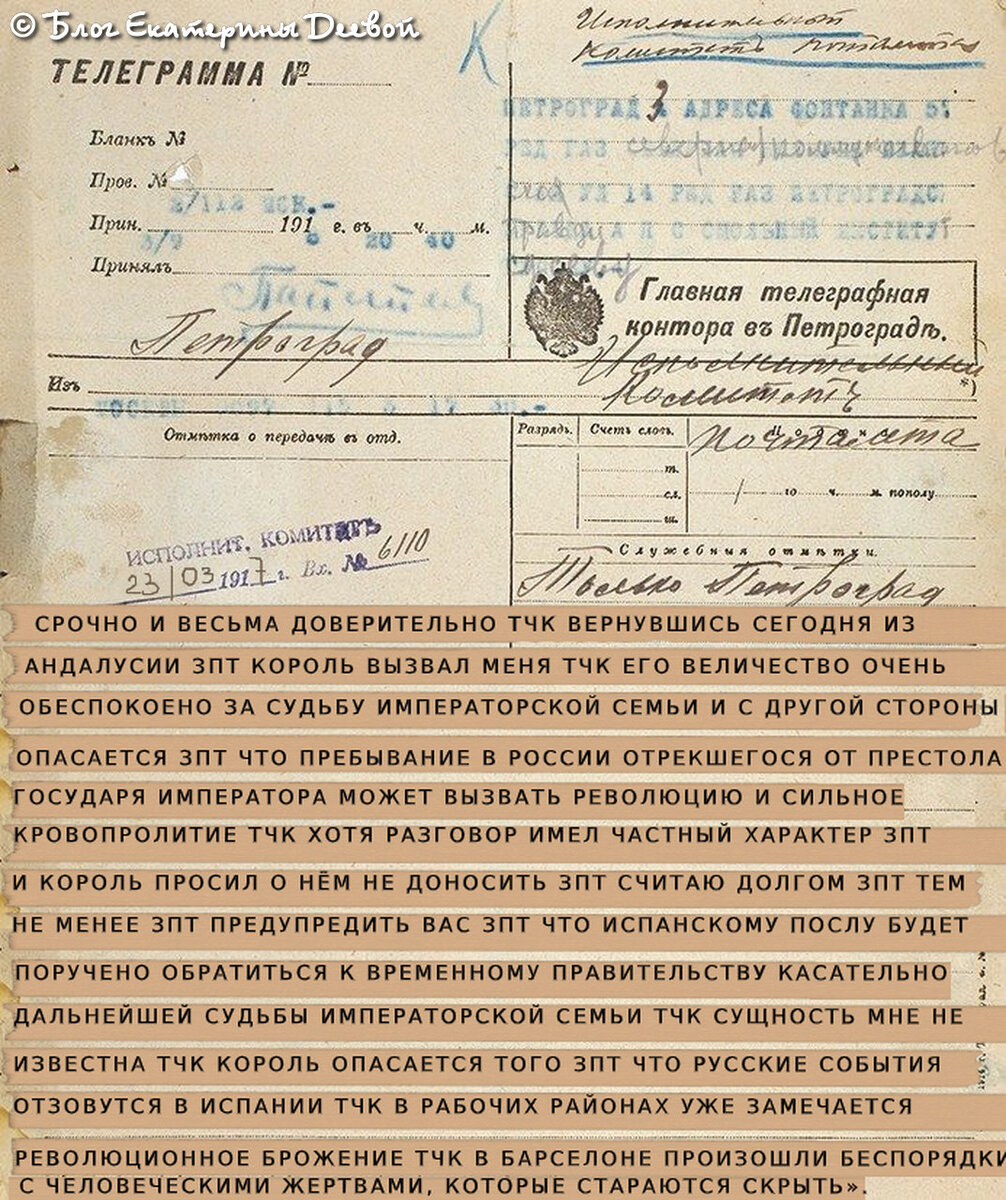 © Блог Екатерины Деевой
ТЕЛЕГРАММА №
К
Исполнительный
Комитетъ
ПЕТРОГРАД 3 АДРЕСА ФОНТАНКА 5
РЕД ГАЗ
УЛ 14 РЕД ГАЗ ПЕТРОГРАДС
Правду А Я С СМОЛЬНЫЙ ИНСТИТУТ
Бланкъ №
Пров. №
Прин. 191 г. въ ч. м.
20 40
Принялъ
Главная телеграфная
контора въ Петроградѣ.
Петроград
Исполнительный
Изъ *)
Комитетъ
Отмѣтка о передачѣ въ отд.
Разрядъ. Счетъ словъ.
т.
сл. го ч. м. пополу
ш.
ИСПОЛНИТ. КОМИТЕТЪ
23/03 1917 г. Вх. № 6110
Служебныя отмѣтки.
Только Петроград
СРОЧНО И ВЕСЬМА ДОВЕРИТЕЛЬНО ТЧК ВЕРНУВШИСЬ СЕГОДНЯ ИЗ
АНДАЛУСИИ ЗПТ КОРОЛЬ ВЫЗВАЛ МЕНЯ ТЧК ЕГО ВЕЛИЧЕСТВО ОЧЕНЬ
ОБЕСПОКОЕНО ЗА СУДЬБУ ИМПЕРАТОРСКОЙ СЕМЬИ И С ДРУГОЙ СТОРОНЫ
ОПАСАЕТСЯ ЗПТ ЧТО ПРЕБЫВАНИЕ В РОССИИ ОТРЕКШЕГОСЯ ОТ ПРЕСТОЛА
ГОСУДАРЯ ИМПЕРАТОРА МОЖЕТ ВЫЗВАТЬ РЕВОЛЮЦИЮ И СИЛЬНОЕ
КРОВОПРОЛИТИЕ ТЧК ХОТЯ РАЗГОВОР ИМЕЛ ЧАСТНЫЙ ХАРАКТЕР ЗПТ
И КОРОЛЬ ПРОСИЛ О НЁМ НЕ ДОНОСИТЬ ЗПТ СЧИТАЮ ДОЛГОМ ЗПТ ТЕМ
НЕ МЕНЕЕ ЗПТ ПРЕДУПРЕДИТЬ ВАС ЗПТ ЧТО ИСПАНСКОМУ ПОСЛУ БУДЕТ
ПОРУЧЕНО ОБРАТИТЬСЯ К ВРЕМЕННОМУ ПРАВИТЕЛЬСТВУ КАСАТЕЛЬНО
ДАЛЬНЕЙШЕЙ СУДЬБЫ ИМПЕРАТОРСКОЙ СЕМЬИ ТЧК СУЩНОСТЬ МНЕ НЕ
ИЗВЕСТНА ТЧК КОРОЛЬ ОПАСАЕТСЯ ТОГО ЗПТ ЧТО РУССКИЕ СОБЫТИЯ
ОТЗОВУТСЯ В ИСПАНИИ ТЧК В РАБОЧИХ РАЙОНАХ УЖЕ ЗАМЕЧАЕТСЯ
РЕВОЛЮЦИОННОЕ БРОЖЕНИЕ ТЧК В БАРСЕЛОНЕ ПРОИЗОШЛИ БЕСПОРЯДКИ
С ЧЕЛОВЕЧЕСКИМИ ЖЕРТВАМИ, КОТОРЫЕ СТАРАЮТСЯ СКРЫТЬ».